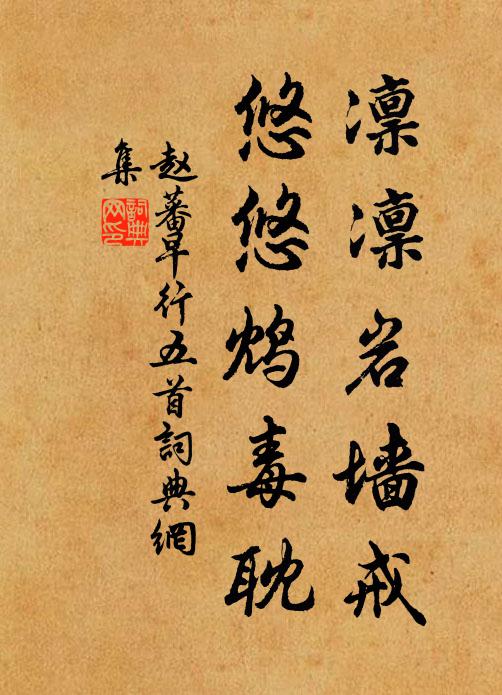 凛凛岩墙戒
悠悠鸩毒耽
赵蕃早行五首詞典網
集
詞典
网印